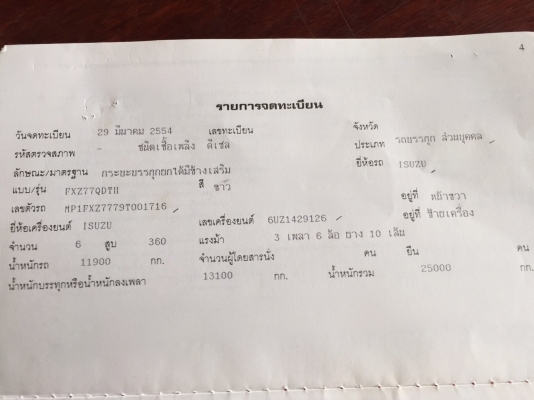 4
รายการจดทะเบียน
วันจดทะเบียน 29 มีนาคม 2554 เลขทะเบียน จังหวัด
รหัสตรวจสภาพ - ชนิดเชื้อเพลิง ดีเซล ประเภท รถบรรทุก ส่วนบุคคล
ลักษณะ/มาตรฐาน กระบะบรรทุกยกได้มีข้างเสริม ยี่ห้อรถ ISUZU
แบบ/รุ่น FXZ77QDTH สี ขาว
เลขตัวรถ MP1FXZ7779T001716 อยู่ที่ หน้าขวา
ยี่ห้อเครื่องยนต์ ISUZU เลขเครื่องยนต์ 6UZ1429126 อยู่ที่ ซ้ายเครื่อง
จำนวน 6 สูบ 360 แรงม้า 3 เพลา 6 ล้อ ยาง 10 เส้น
น้ำหนักรถ 11900 กก. จำนวนผู้โดยสารนั่ง คน ยืน คน
น้ำหนักบรรทุกหรือน้ำหนักลงเพลา 13100 กก. น้ำหนักรวม 25000 กก.